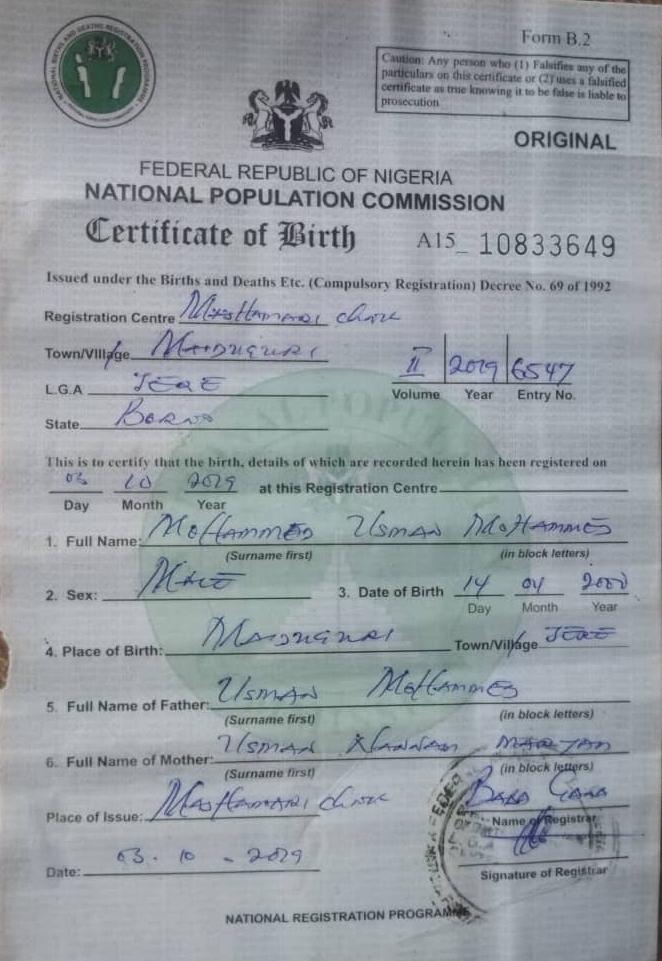 NATIONAL BIRTHS AND DEATHS REGISTRATION PROGRAMME
Form B.2
Caution: Any person who (1) Falsifies any of the
particulars on this certificate or (2) uses a falsified
certificate as true knowing it to be false is liable to
prosecution
ORIGINAL
FEDERAL REPUBLIC OF NIGERIA
NATIONAL POPULATION COMMISSION
Certificate of Birth A15_ 10833649
Issued under the Births and Deaths Etc. (Compulsory Registration) Decree No. 69 of 1992
Registration Centre MASHAMARI
Town/Village MAIDUGURI
II 2019 6547
L.G.A JERE
Volume Year Entry No.
State BORNO
This is to certify that the birth, details of which are recorded herein has been registered on
03 10 2019 at this Registration Centre
Day Month Year
1. Full Name: MOHAMMED USMAN MOHAMMED
(Surname first) (in block letters)
2. Sex: MALE 3. Date of Birth 14 04 2000
Day Month Year
4. Place of Birth: MAIDUGURI Town/Village JERE
5. Full Name of Father: USMAN MOHAMMED
(Surname first) (in block letters)
6. Full Name of Mother: USMAN MARYAM
(Surname first) (in block letters)
Place of Issue: MASHAMARI BABA GANA
Name of Registrar
Date: 03 - 10 - 2019
Signature of Registrar
NATIONAL REGISTRATION PROGRAMME